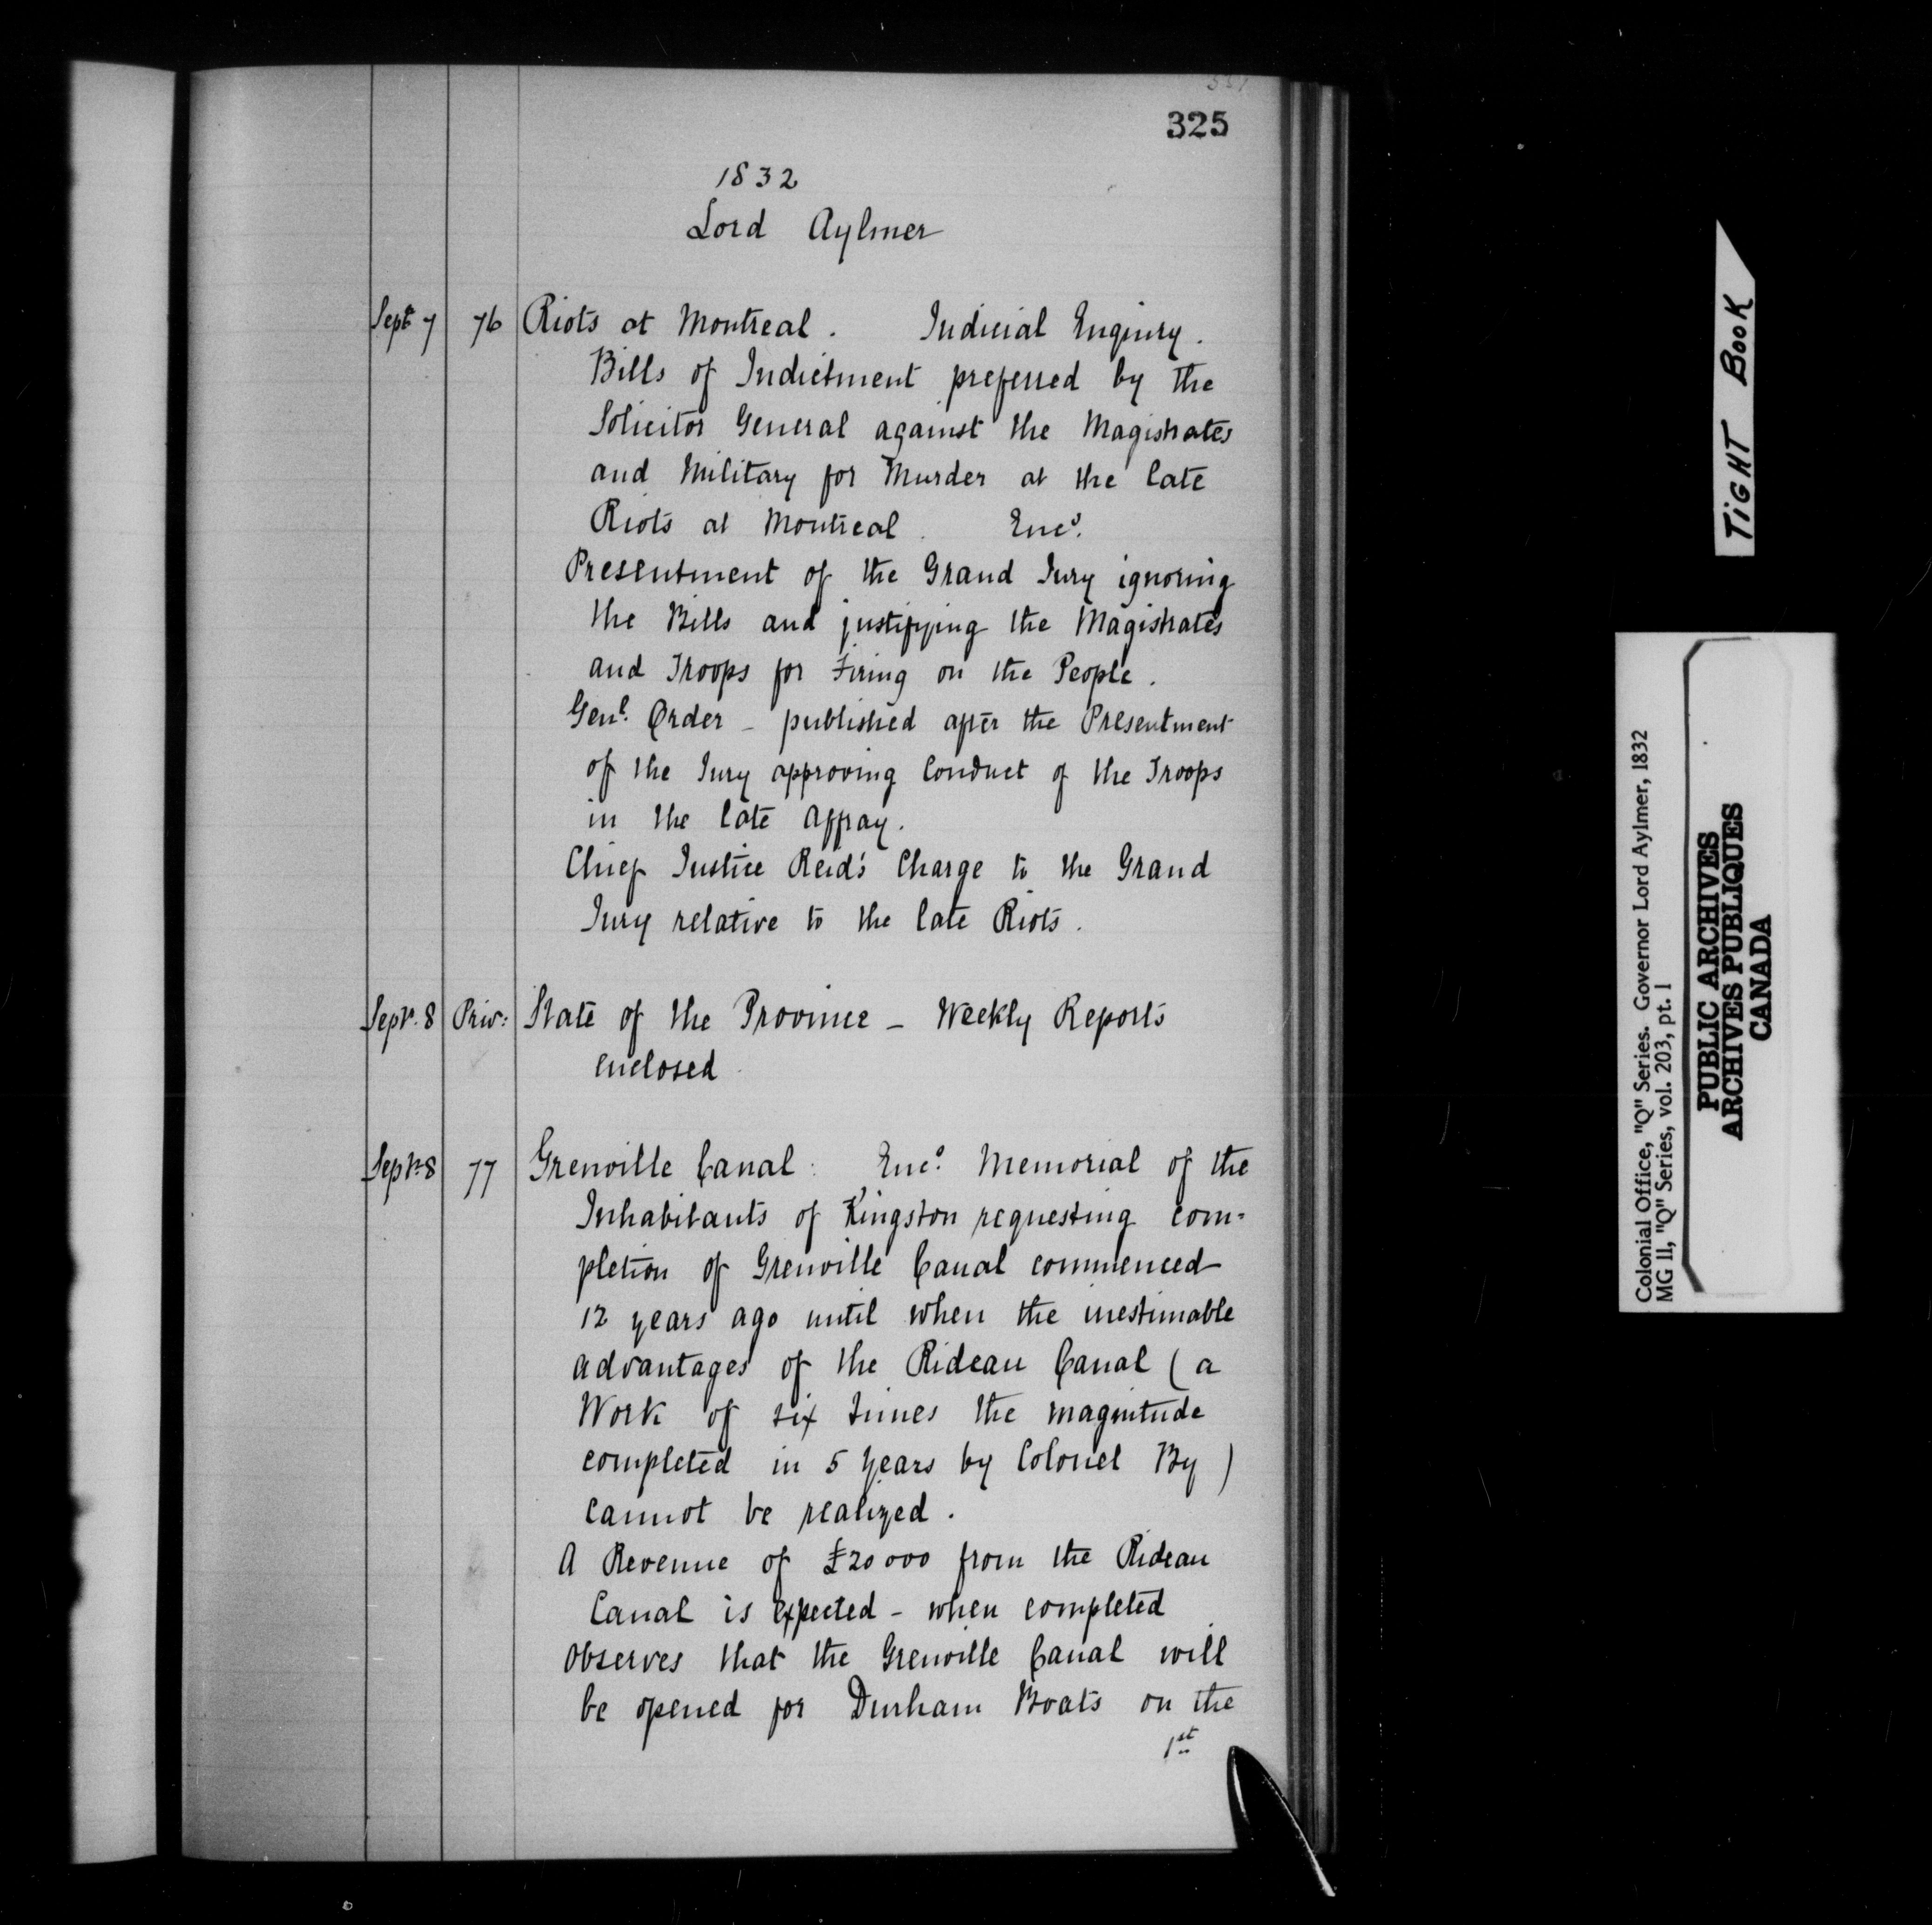 325
1832
Lord Aylmer
Sept 7 76 Riots at Montreal. Judicial Enquiry.
Bills of Indictment preferred by the
Solicitor General against the Magistrates
and Military for Murder at the late
Riots at Montreal. Encs.
Presentment of the Grand Jury ignoring
the Bills and justifying the Magistrates
and Troops for Firing on the People.
Genl. Order - published after the Presentment
of the Jury approving Conduct of the Troops
in the late Affray.
Chief Justice Reid's Charge to the Grand
Jury relative to the late Riots.
Sepr. 8 Priv: State of the Province - Weekly Reports
enclosed.
Sepr. 8 77 Grenville Canal: Encs. Memorial of the
Inhabitants of Kingston requesting com-
pletion of Grenville Canal commenced
12 years ago until when the inestimable
advantages of the Rideau Canal (a
Work of six times the magnitude
completed in 5 years by Colonel By)
cannot be realized.
A Revenue of £20000 from the Rideau
Canal is expected - when completed
Observes that the Grenville Canal will
be opened for Durham Boats on the
1st
TIGHT BOOK
Colonial Office, "Q" Series. Governor Lord Aylmer, 1832
MG 11, "Q" Series, vol. 203, pt. 1
PUBLIC ARCHIVES
ARCHIVES PUBLIQUES
CANADA